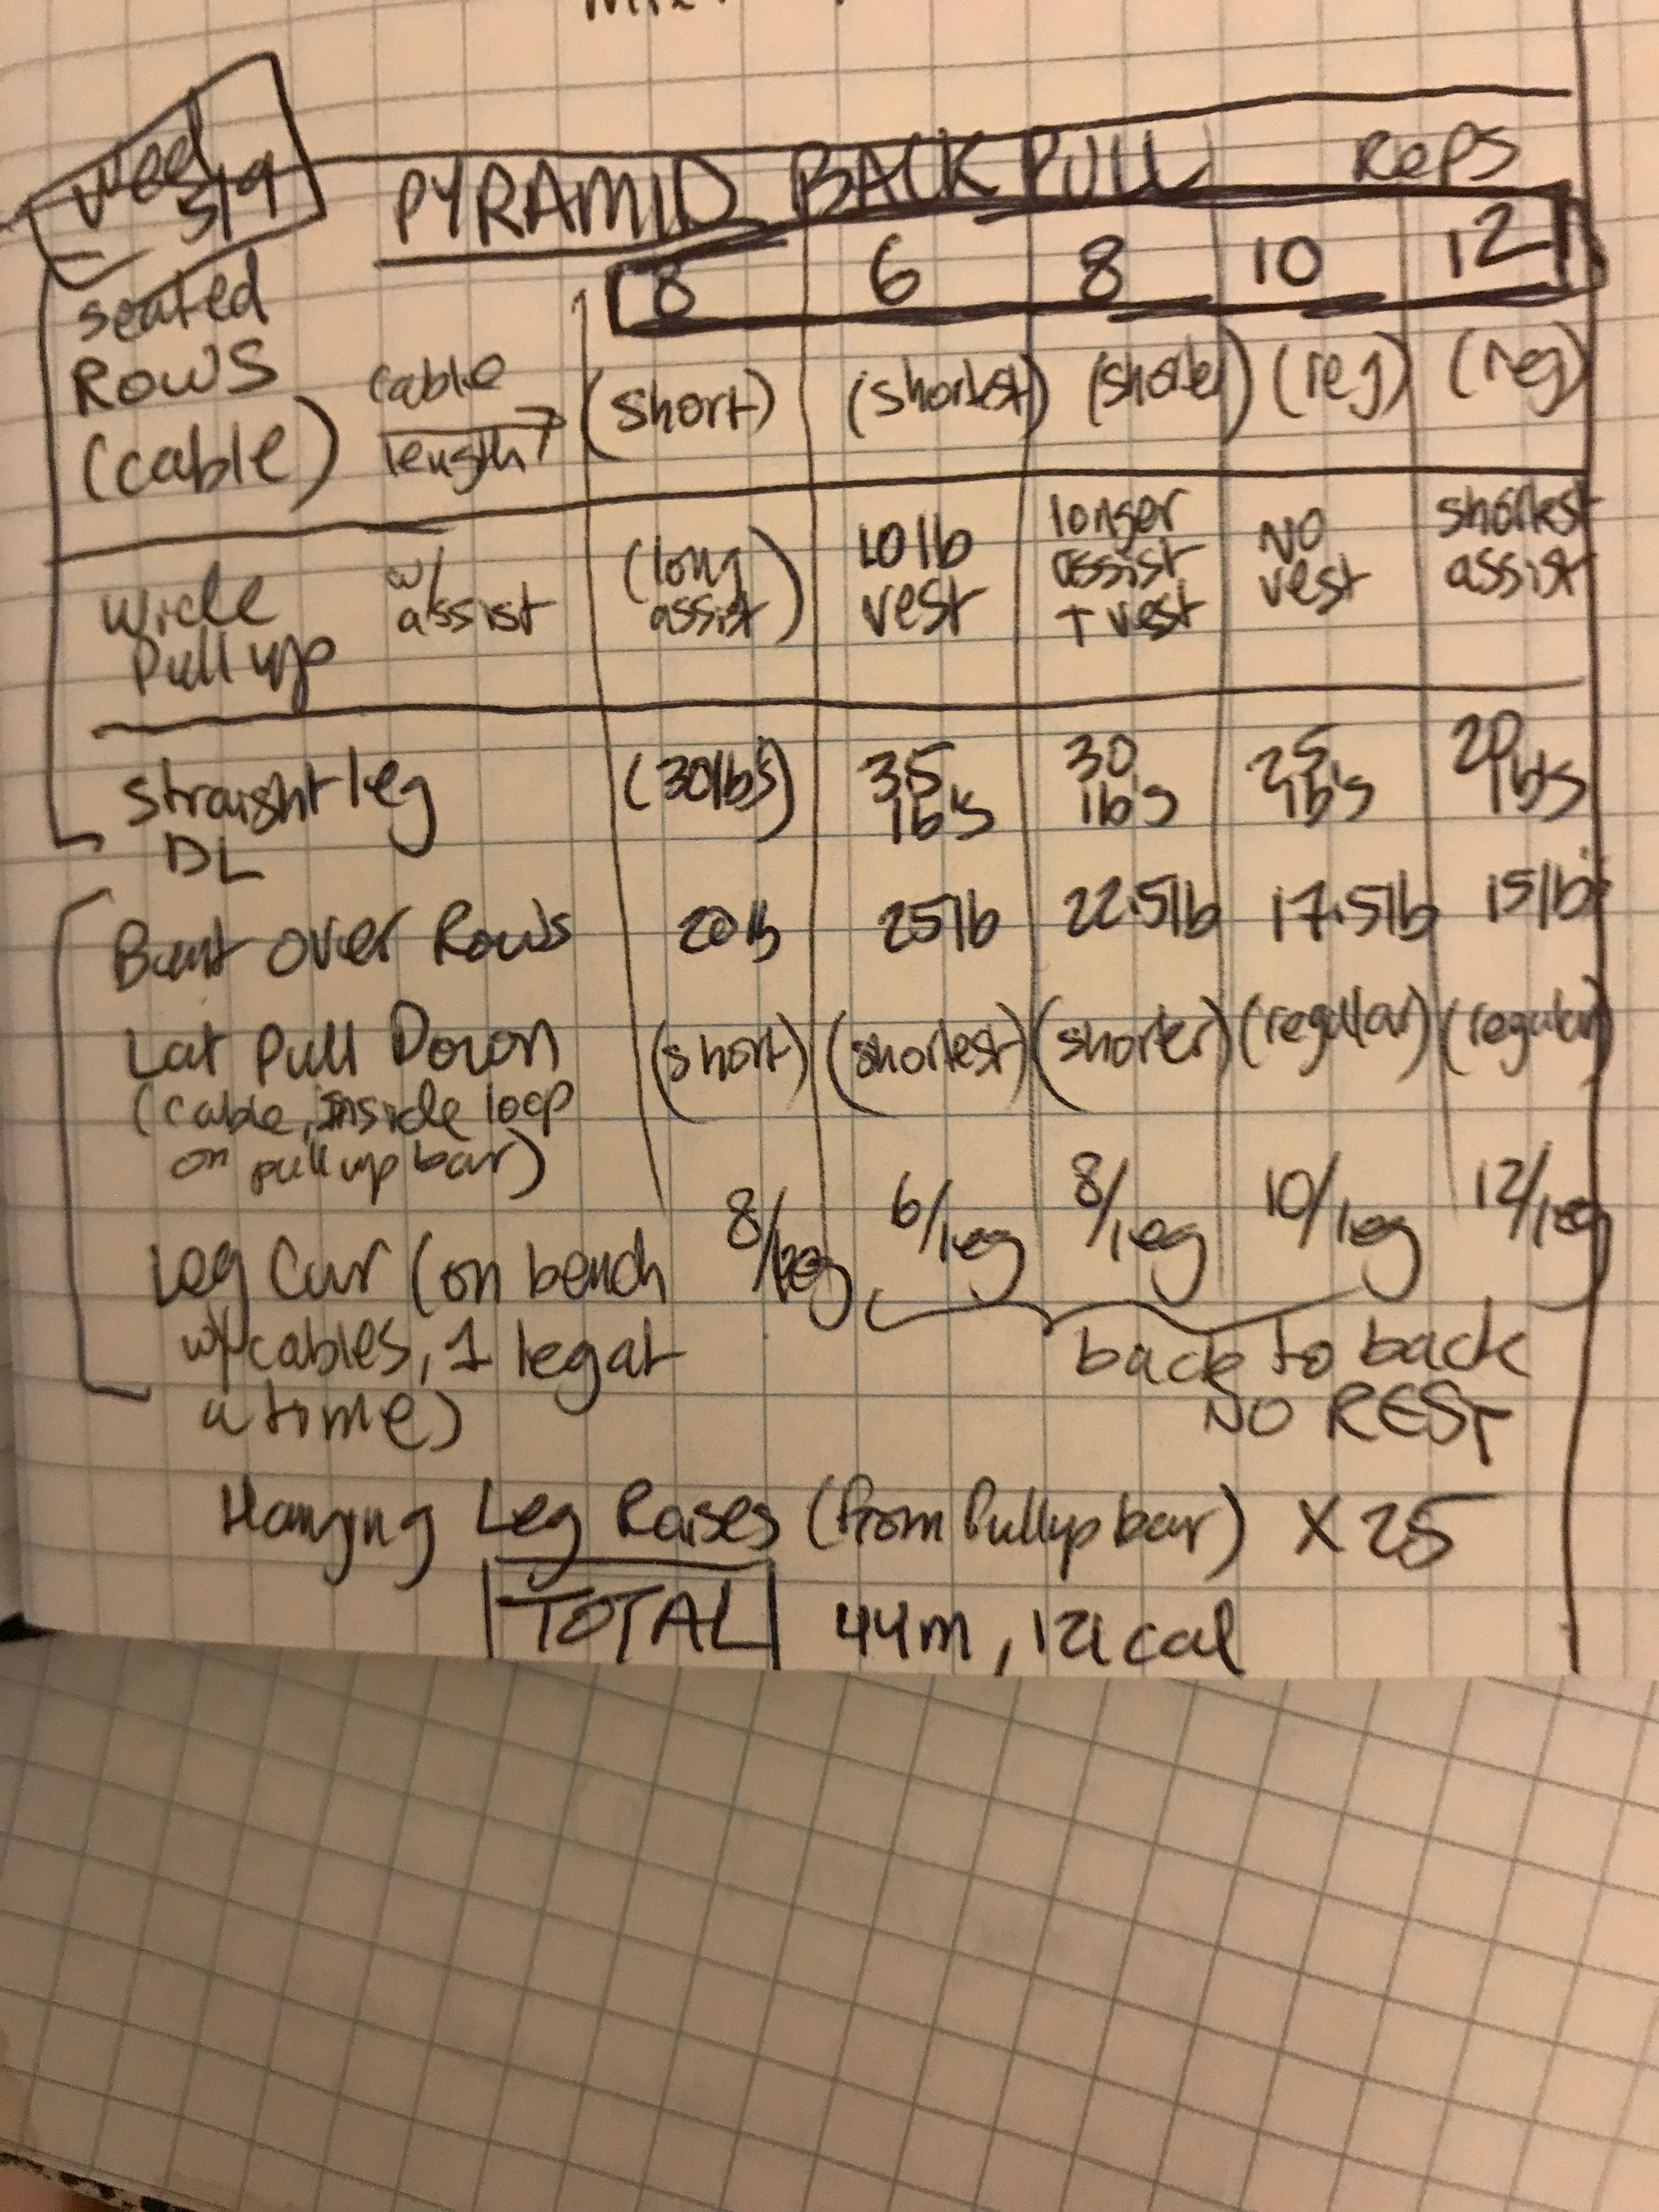 Wed
5/9
PYRAMID BACK PULL Reps
8 6 8 10 12
seated
Rows
(cable)
cable
length
(short) (shortest) (shorter) (reg) (reg)
wide
Pull up
w/
assist
(long
assist)
10 lb
vest
longer
assist
+ vest
NO
vest
shortest
assist
straight leg
DL
(30lb's) 35
lb's
30
lb's
25
lb's
20
lb's
Bent over Rows 20lb 25lb 22.5lb 17.5lb 15lb's
Lat Pull Down (short) (shortest) (shorter) (regular) (regular)
(cable, inside loop
on pull up bar)
Leg Cur (on bench 8/leg 6/leg 8/leg 10/leg 12/leg
w/ cables, 1 leg at
a time)
back to back
NO REST
Hanging Leg Raises (from Pullup bar) X 25
TOTAL 44m, 121 cal